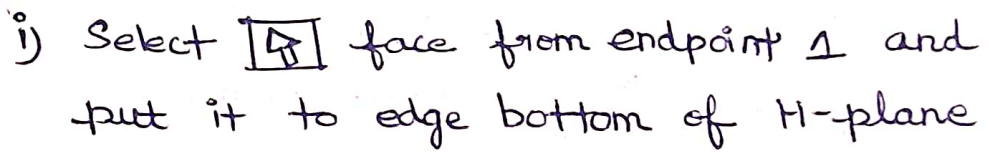 i) Select face from endpoint 1 and
put it to edge bottom of H-plane